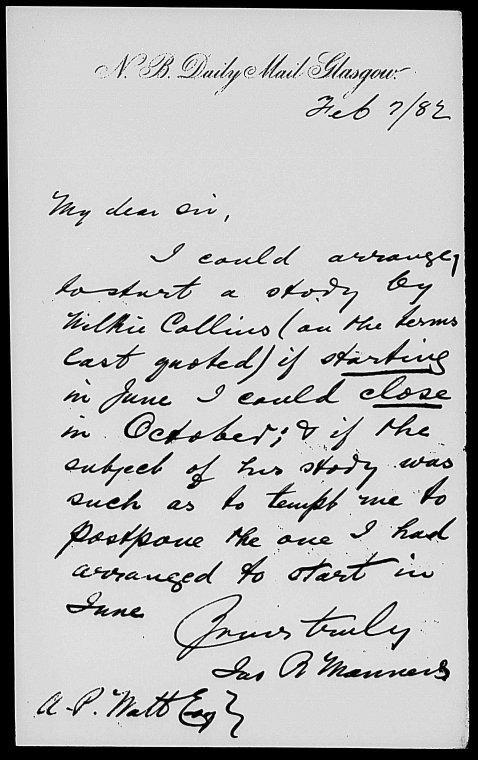 N. B. Daily Mail Glasgow.
Feb 7/82
My dear Sir,
I could arrange,
to start a story by
Wilkie Collins (on the terms
last quoted) if starting
in June I could close
in October; & if the
subject of his story was
such as to tempt me to
postpone the one I had
arranged to start in
June
Yours truly
Jas R Manners
A. P. Watt Esq